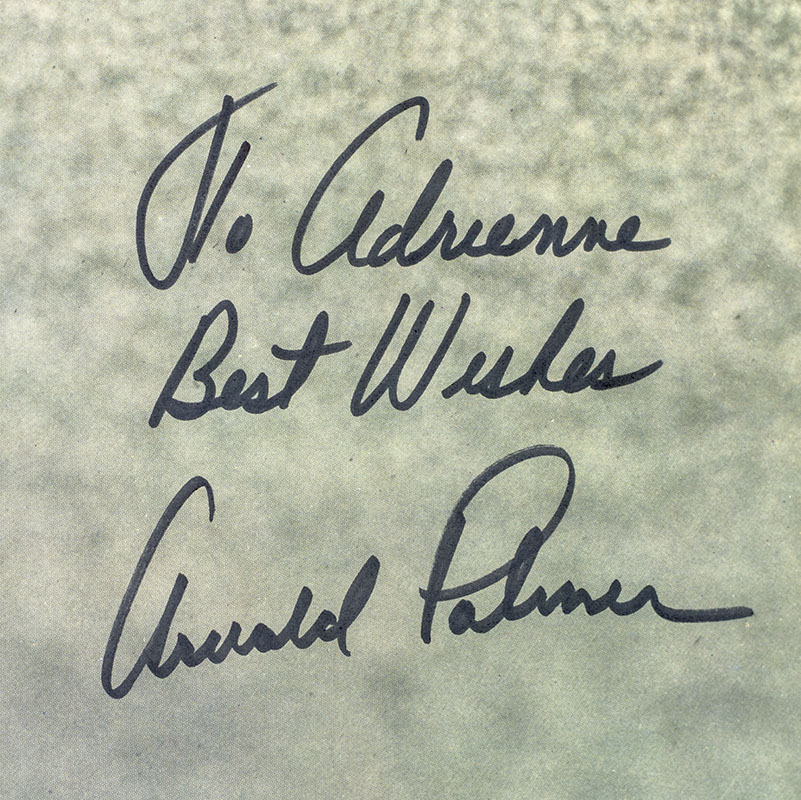 To Adrienne
Best Wishes
Arnold Palmer